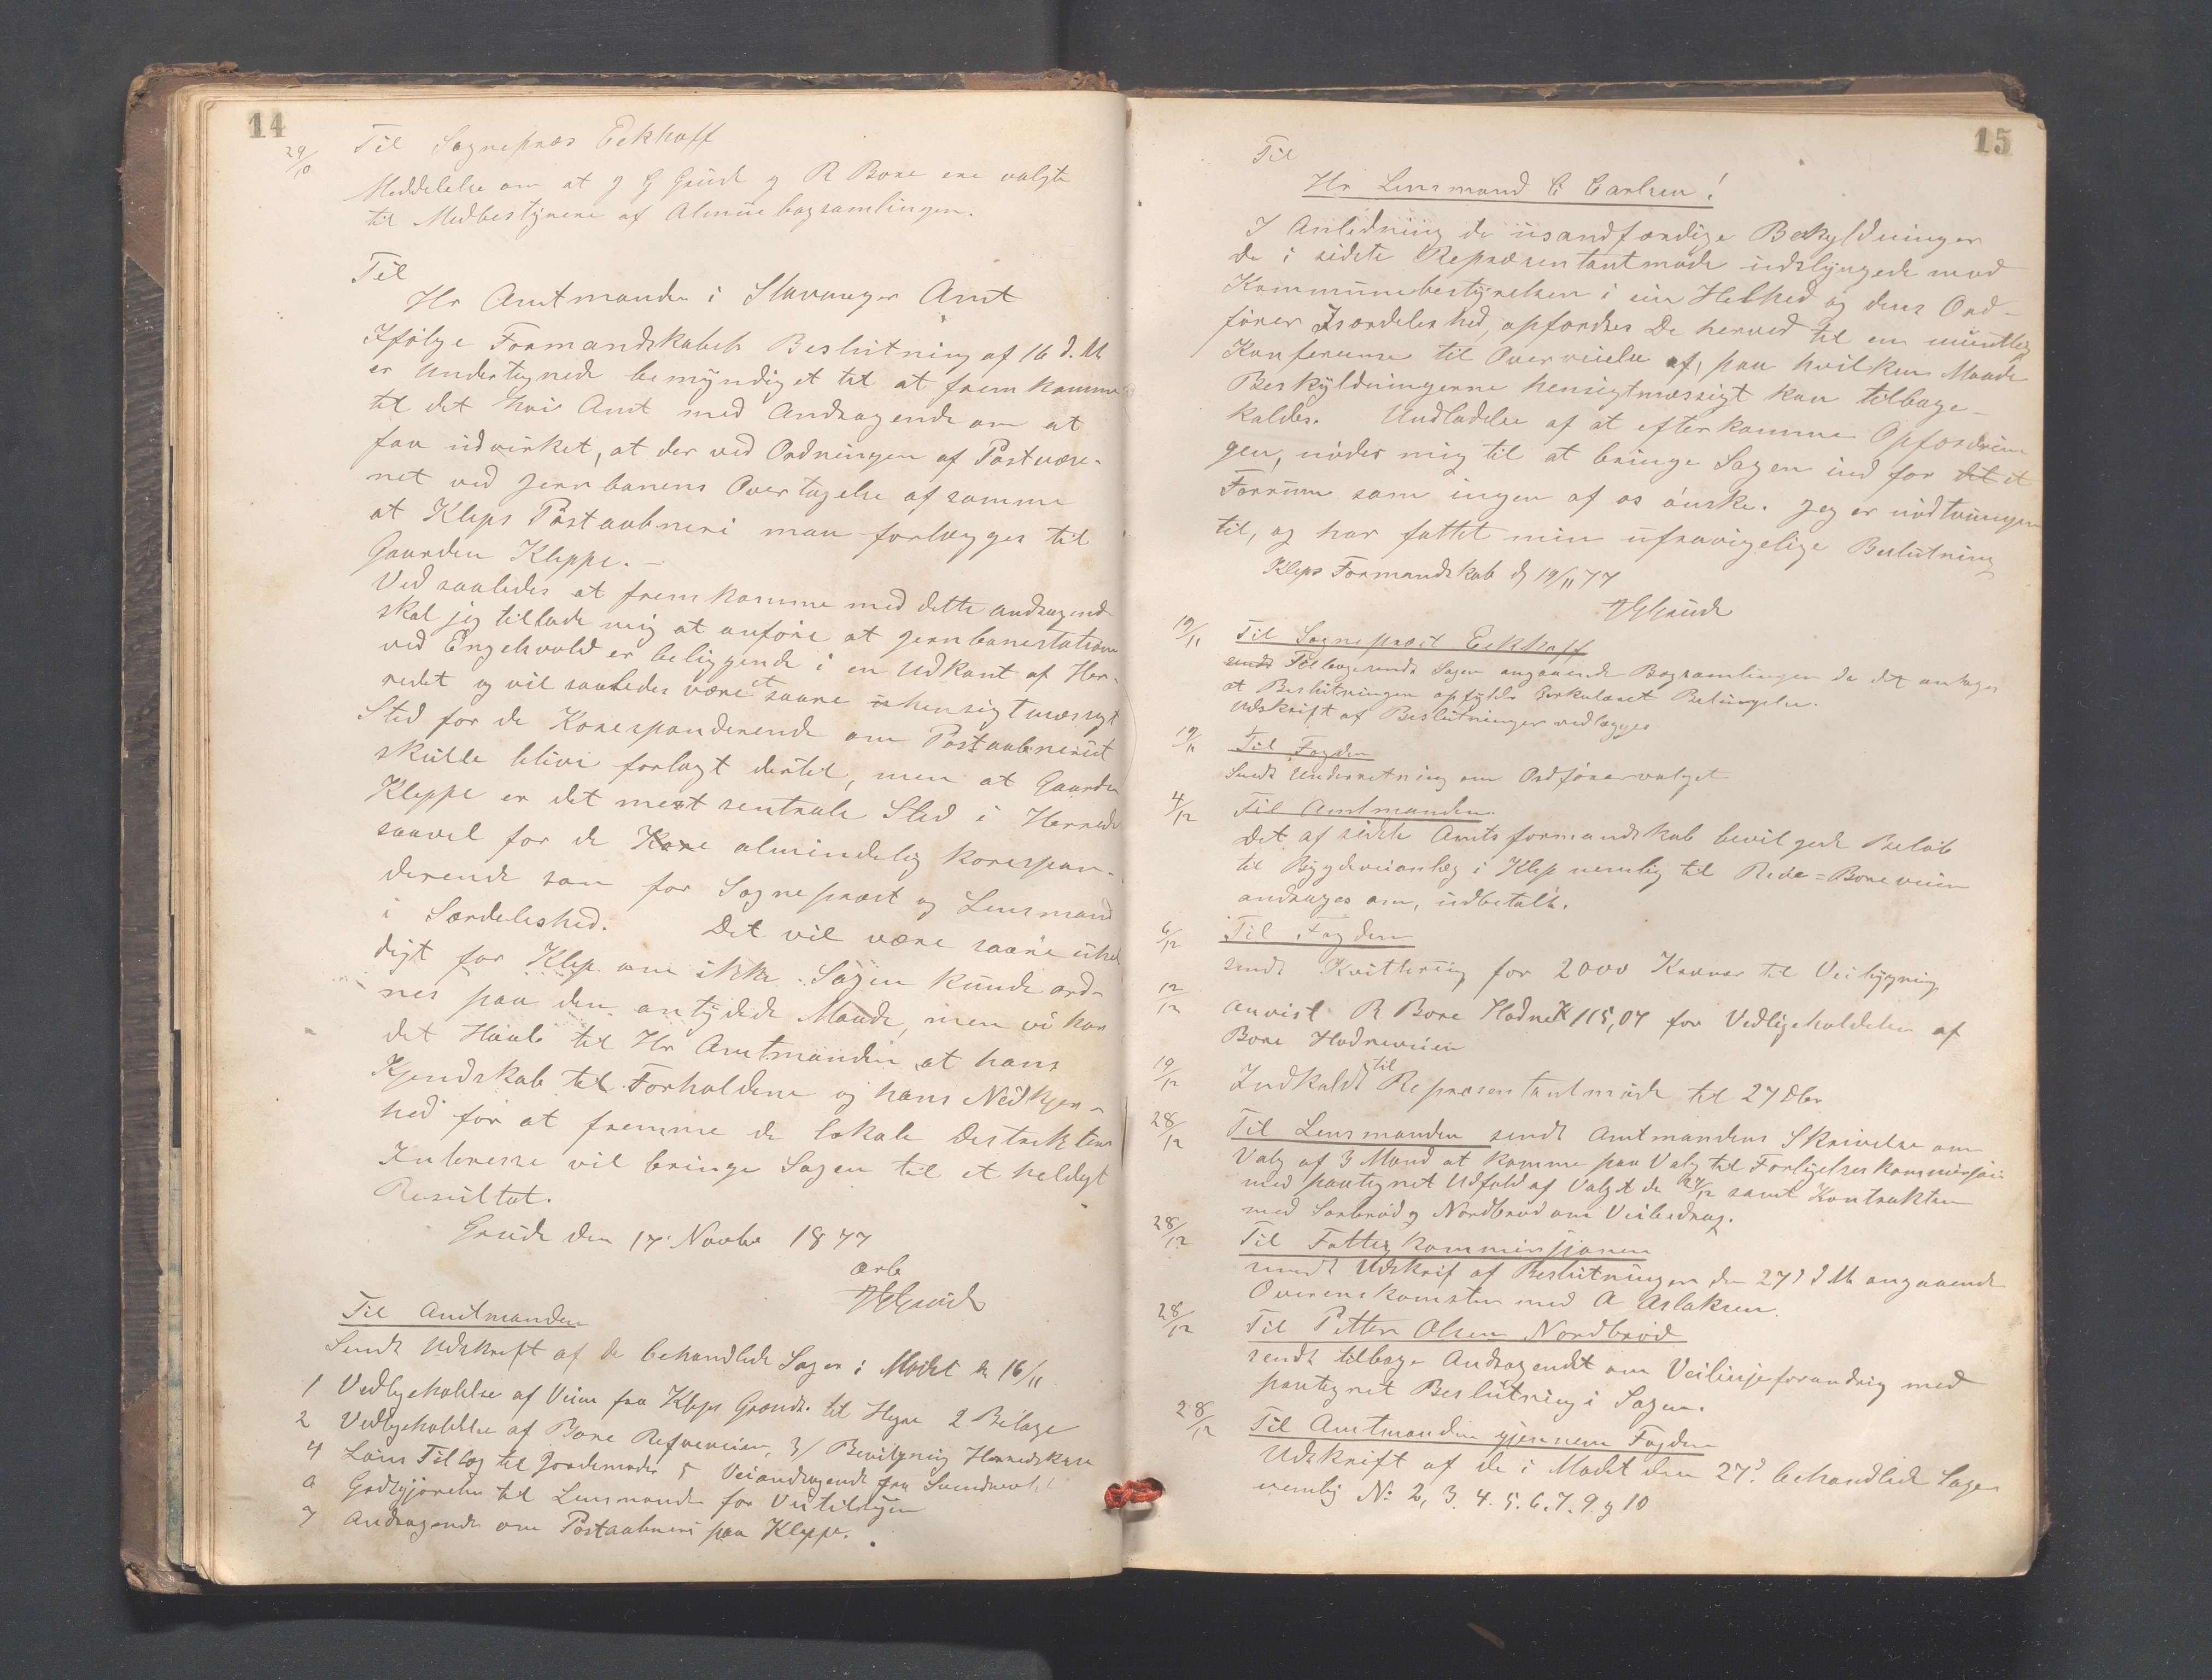 14
29/10 Til Sognepræs Eckhoff
Meddelelse om at J G Grude og R Bore ere valgte
til Medbestyrere af Almue bogsamlingen.
Til
Hr Amtmanden i Stavanger Amt
Ifølge Formandskabets Beslutning af 16 d. M
er Undertegnede bemyndiget til at fremkomme
til det høie Amt med Andragende om at
faa udvirket, at der ved Ordningen af Postvæse-
net ved Jernbanens Overtagelse af samme
at Kleps Postaabneri maa forlægges til
Gaarden Kleppe. –
Ved saaledes at fremkomme med dette andragende
skal jeg tillade mig at anføre at Jernbanestationen
ved Engelsvold er beliggende i en Udkant af Her-
redet og vil saaledes være et saare uhensigtmæssigt
Sted for de Koresponderende om Postaabneriet
skulde blive forlagt dertil, men at Gaarden
Kleppe er det mest sentrale Sted i Herredet
saavel for de Kore almindelig korespon-
derende som for Sognepræst og Lensmand
i Særdeleshed. Det vil være saare uhel
digt for Klep om ikke Sagen kunde ord-
nes paa den antydede Maade, men vi har
det Haab til Hr Amtmanden at hans
Kjendskab til Forholdene og hans Nidkjer-
hed for at fremme de lokale Distrikters
Interesse vil bringe Sagen til et heldigt
Resultat.
Grude den 17 Novbr 1877
ærb
JG Grude
Til Amtmanden
Sendt Udskrift af de behandlede Sager i Mødet den 16/11
1 Vedligeholdelse af Veien fra Kleps Grændse til Hegre 2 Bilage
2 Vedligeholdelse af Bore Refveien, 3/ Bevilgning Herredskasse
4 Løns Tillæg til Jordemoder 5 Veiandragende fra
6 Godtgjørelse til Lensmanden for Veitilsyn
7 Andragende om Postaabneri paa Kleppe.
15
Til
Hr Lensmand C Carlsen!
I Anledning de usandfærdige Beskyldninger
De i sidste Repræsentantmøde udslyngede mod
Kommunebestyrelsen i sin Helhed og dens Ord-
fører Isærdeleshed, opfordres De herved til en mundtlig
Konferense til Overveielse af, paa hvilken Maade
Beskyldningerne hensigtmæssigt kan tilbage-
kaldes. Undladelse af at efterkomme Opfordrin-
gen, nøder mig til at bringe Sagen ind for det et
Forrum som ingen af os ønske. Jeg er nødtvungen
til, og har fattet min ufravigelige Beslutning
Kleps Formandskab d 19/11 77
JG Grude
19/11 Til Sognepræst Eckhoff
sendt Tilbagesendt Sagen angaaende Bogsamlingen da det antages
at Beslutningen opfylder Serkulæret Betingelse.
Udskrift af Beslutninger vedlægges
19/11 Til Fogden
Sendt Underretning om Ordførervalget
4/12 Til Amtmanden
Det af sidste Amtsformandskab bevilgede Beløb
til Bygdeveianlæg i Klep nemlig til Reve=Boreveien
andrages om, udbetalt.
6/12 Til Fogden
sendt Kvittering for 2000 Kroner til Veibygning
12/12 anvist R Bore Hodne K 115,04 for Vedligeholdelsen af
Bore Hodneveien
19/12 Indkaldt til Repræsentantmøde til 27 Dbr
28/12 Til Lensmanden sendt Amtmandens Skrivelse om
Valg af 3 Mænd at komme paa Valg til Forligelseskommissjon
med paategnet Udfald af Valget de 27/12 samt Kontrakten
med Sørbrød og Nordbrød om Veibidrag.
28/12 Til Fattigkommissjonen
sendt Udskrif af Beslutningen den 27d d M angaaende
Overenskomsten med A Aslaksen.
28/12 Til Petter Olsen Nordbrød
sendt tilbage Andragendet om Veilinjeforandrig med
paategnet Beslutning i Sagen.
28/12 Til Amtmanden gjennem Fogden
Udskrift af de i Mødet den 27d behandlede Sager
nemlig No 2, 3. 4. 5. 6. 7. 9. g 10